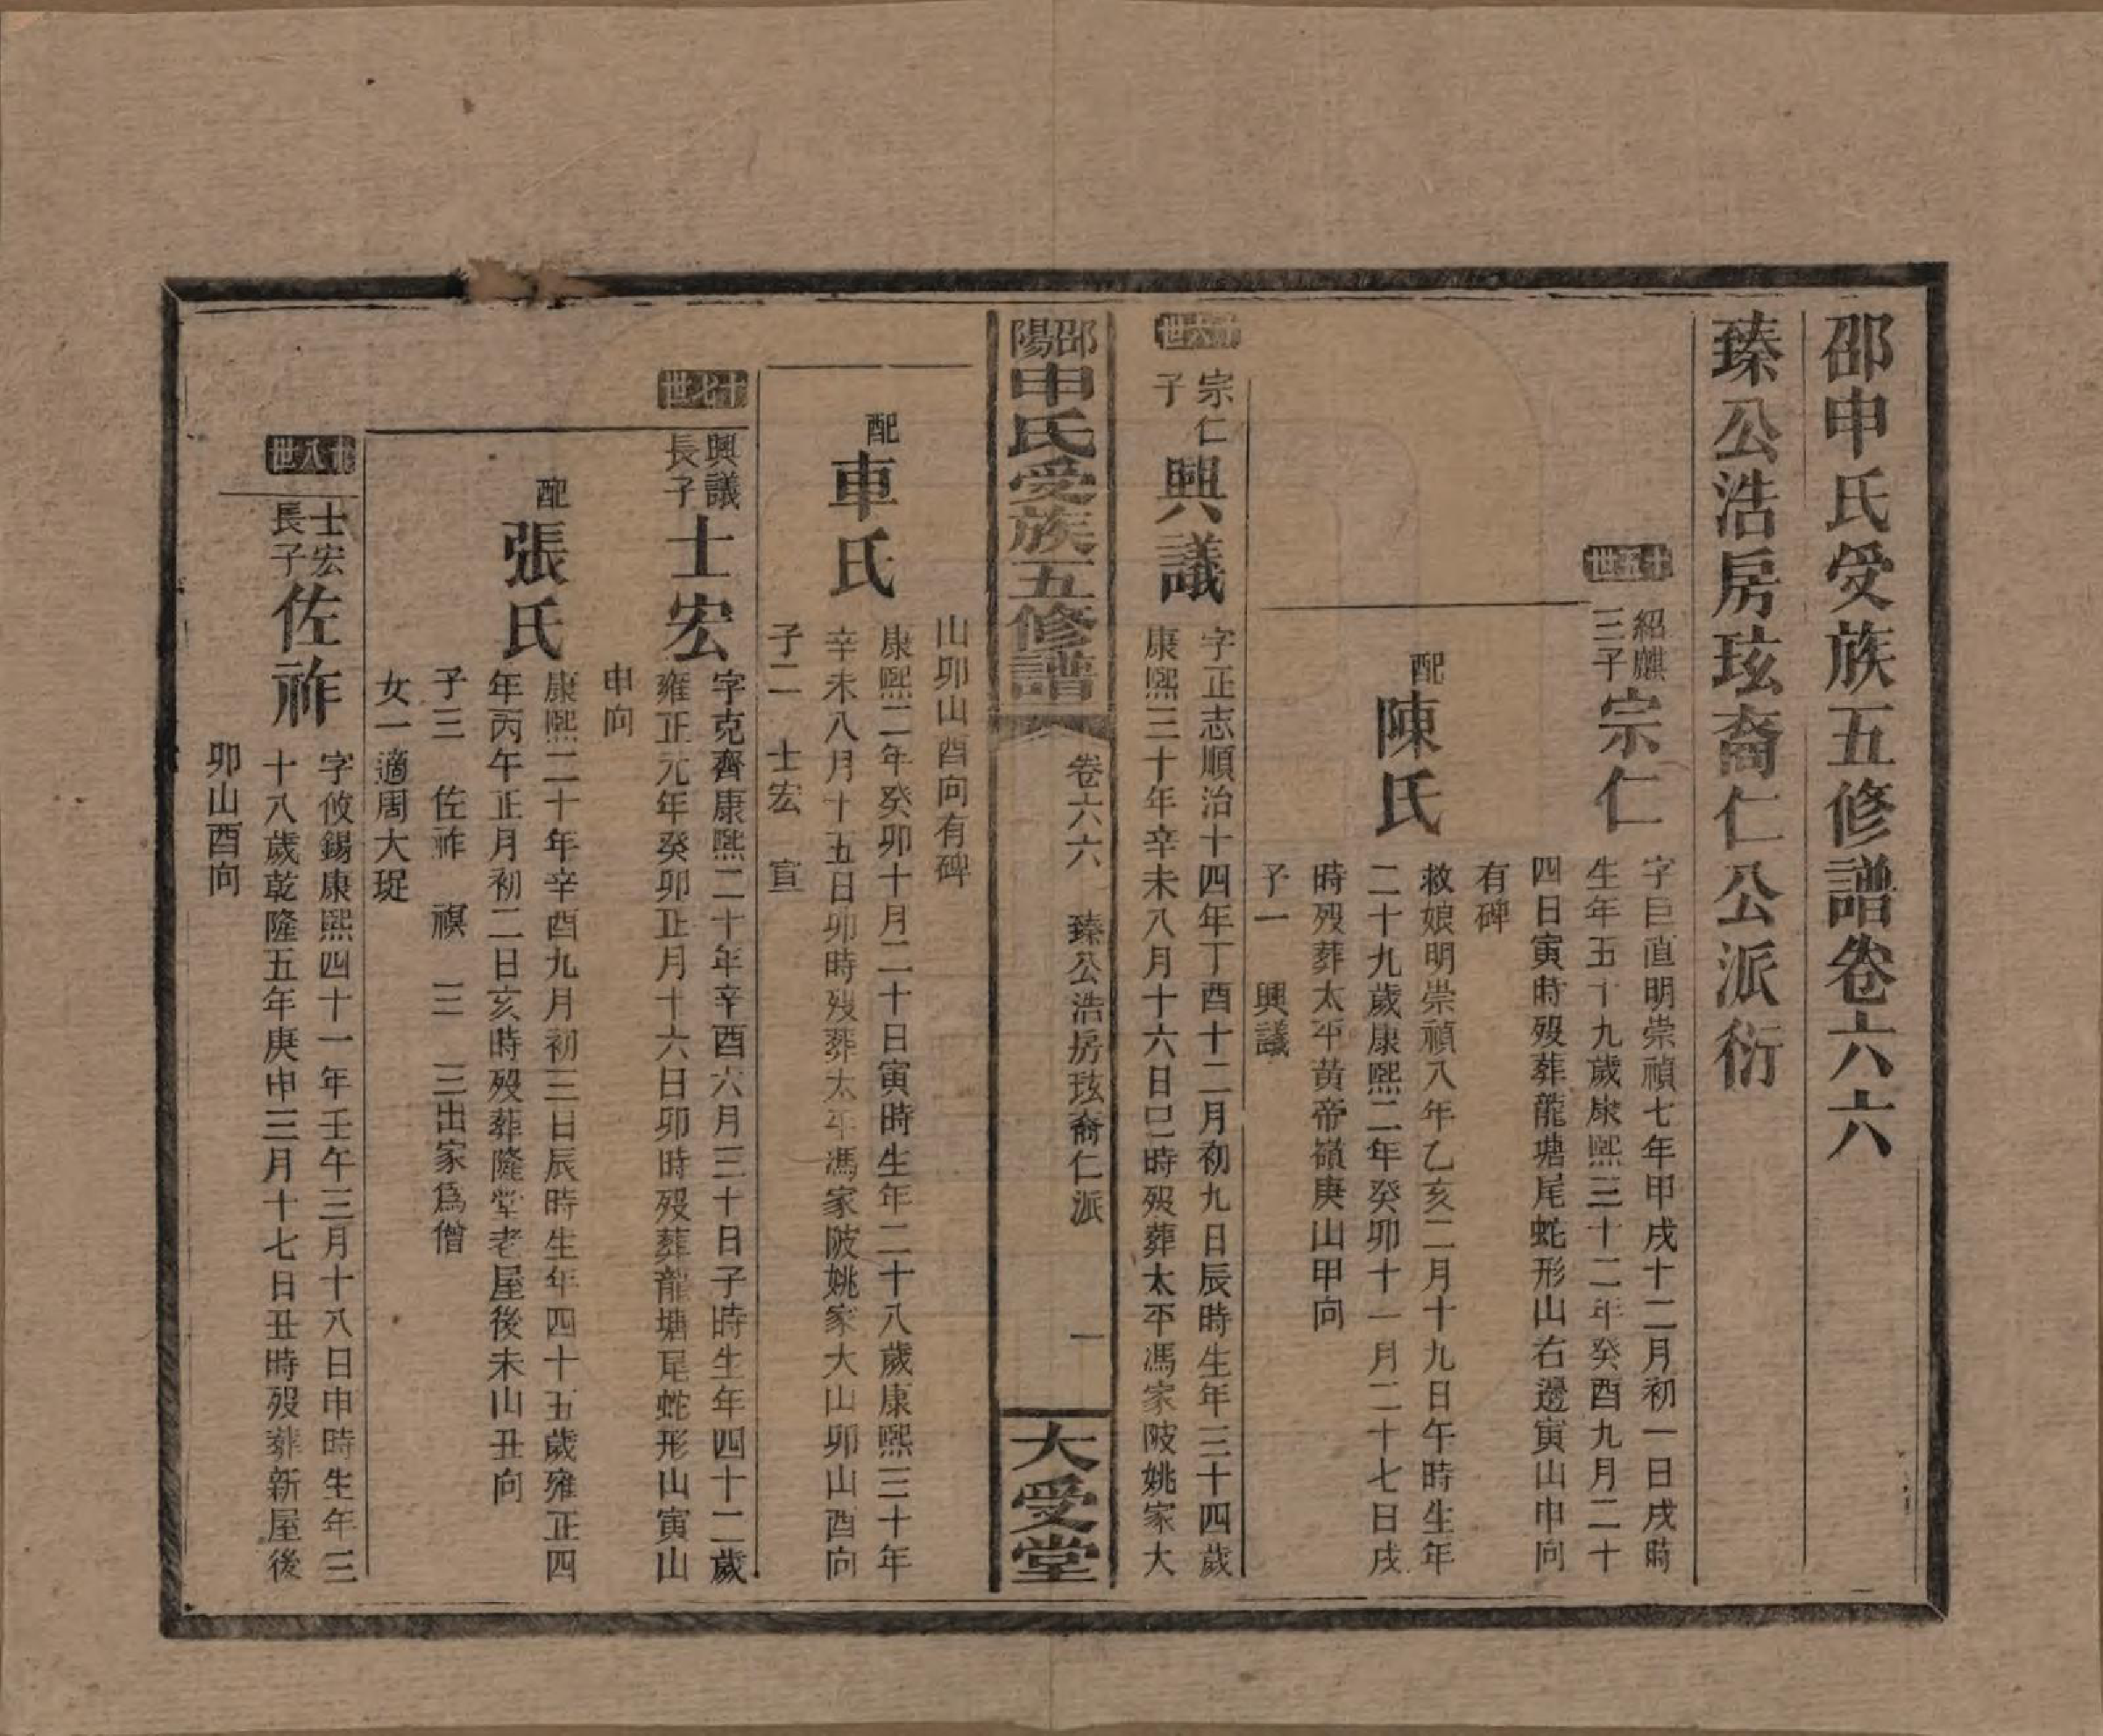 邵申氏受族五修譜卷六六
臻公浩房玹裔仁公派衍
十五世
紹麒
三子
宗仁
字巨直明崇禎七年甲戌十二月初一日戌時
生年五十九歲康熙三十二年癸酉九月二十
四日寅時歿葬龍塘尾蛇形山右邊寅山申向
有碑
配
陳氏
救娘明崇禎八年乙亥二月十九日午時生年
二十九歲康熙二年癸卯十一月二十七日戌
時歿葬太平黃帝嶺庚山甲向
子一 興議
十六世
宗仁
子
興議
字正志順治十四年丁酉十二月初九日辰時生年三十四歲
康熙三十年辛未八月十六日巳時歿葬太平馮家陂姚家大
邵陽申氏受族五修譜
卷六六 臻公浩房玹裔仁派
一
大受堂
山卯山酉向有碑
配
車氏
康熙二年癸卯十月二十日寅時生年二十八歲康熙三十年
辛未八月十五日卯時歿葬太平馮家陂姚家大山卯山酉向
子二 士宏 宣
十七世
興議
長子
士宏
字克齊康熙二十年辛酉六月三十日子時生年四十二歲
雍正元年癸卯正月十六日卯時歿葬龍塘尾蛇形山寅山
申向
配
張氏
康熙二十年辛酉九月初三日辰時生年四十五歲雍正四
年丙午正月初二日亥時歿葬隆堂老屋後未山丑向
子三 佐祚 禩 三 三出家爲僧
女一適周大珽
十八世
士宏
長子
佐祚
字攸錫康熙四十一年壬午三月十八日申時生年三
十八歲乾隆五年庚申三月十七日丑時歿葬新屋後
卯山酉向